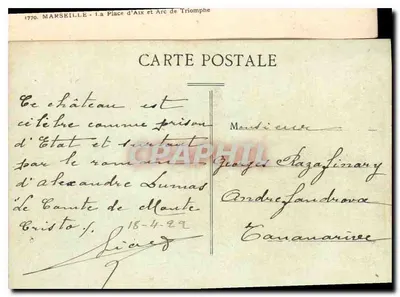 1770. MARSEILLE - La Place d'Aix et Arc de Triomphe
CARTE POSTALE
Ce château est
célèbre comme prison
d'Etat et surtout
par le roman
d'Alexandre Dumas
Le Comte de Monte
Cristo.
18-4-22
Monsieur
Georges Razafinary
Andrefandrova
Tananarive
CPAPHIL